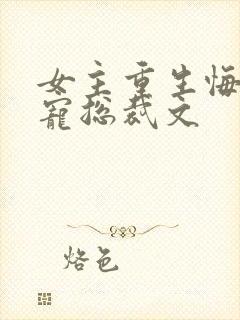 女主重生悔
寵總裁文
烙色